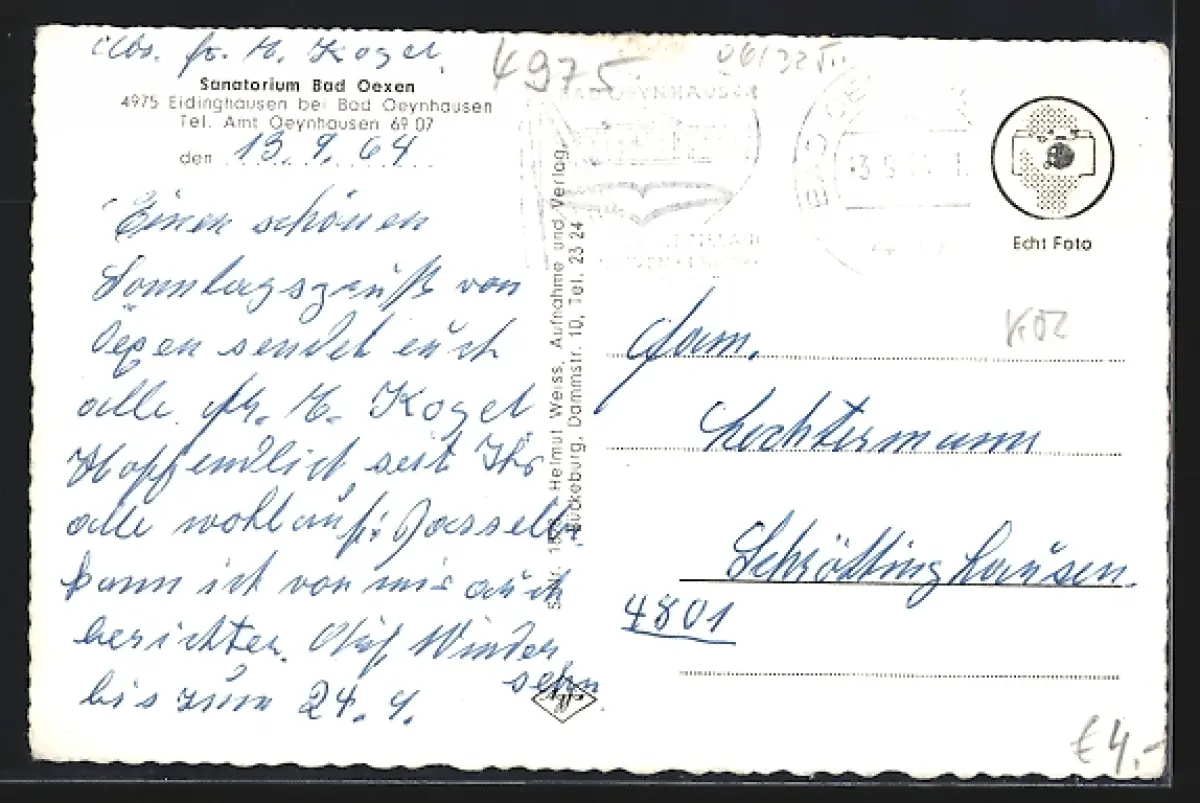 Abs. fr. H. Kogel.
Sanatorium Bad Oexen
4975 Eidinghausen bei Bad Oeynhausen
Tel. Amt Oeynhausen 69 07
den 13.9.64
Einen schönen
Sonntagsgruß von
Oexen sendet euch
alle fr. H. Kogel
Hoffendlich seit Ihr
alle wohlauf. Dasselbe
kann ich von mir auch
berichten. Auf Wieder
sehn
bis zum 24. 9.
4975
BAD OEYNHAUSEN
Helmut Weiss, Aufnahme und Verlag,
Bückeburg, Dammstr. 10, Tel. 23 24
Echt Foto
K02
Fam.
Lechtermann
Schröttinghausen
4801
€ 4,-